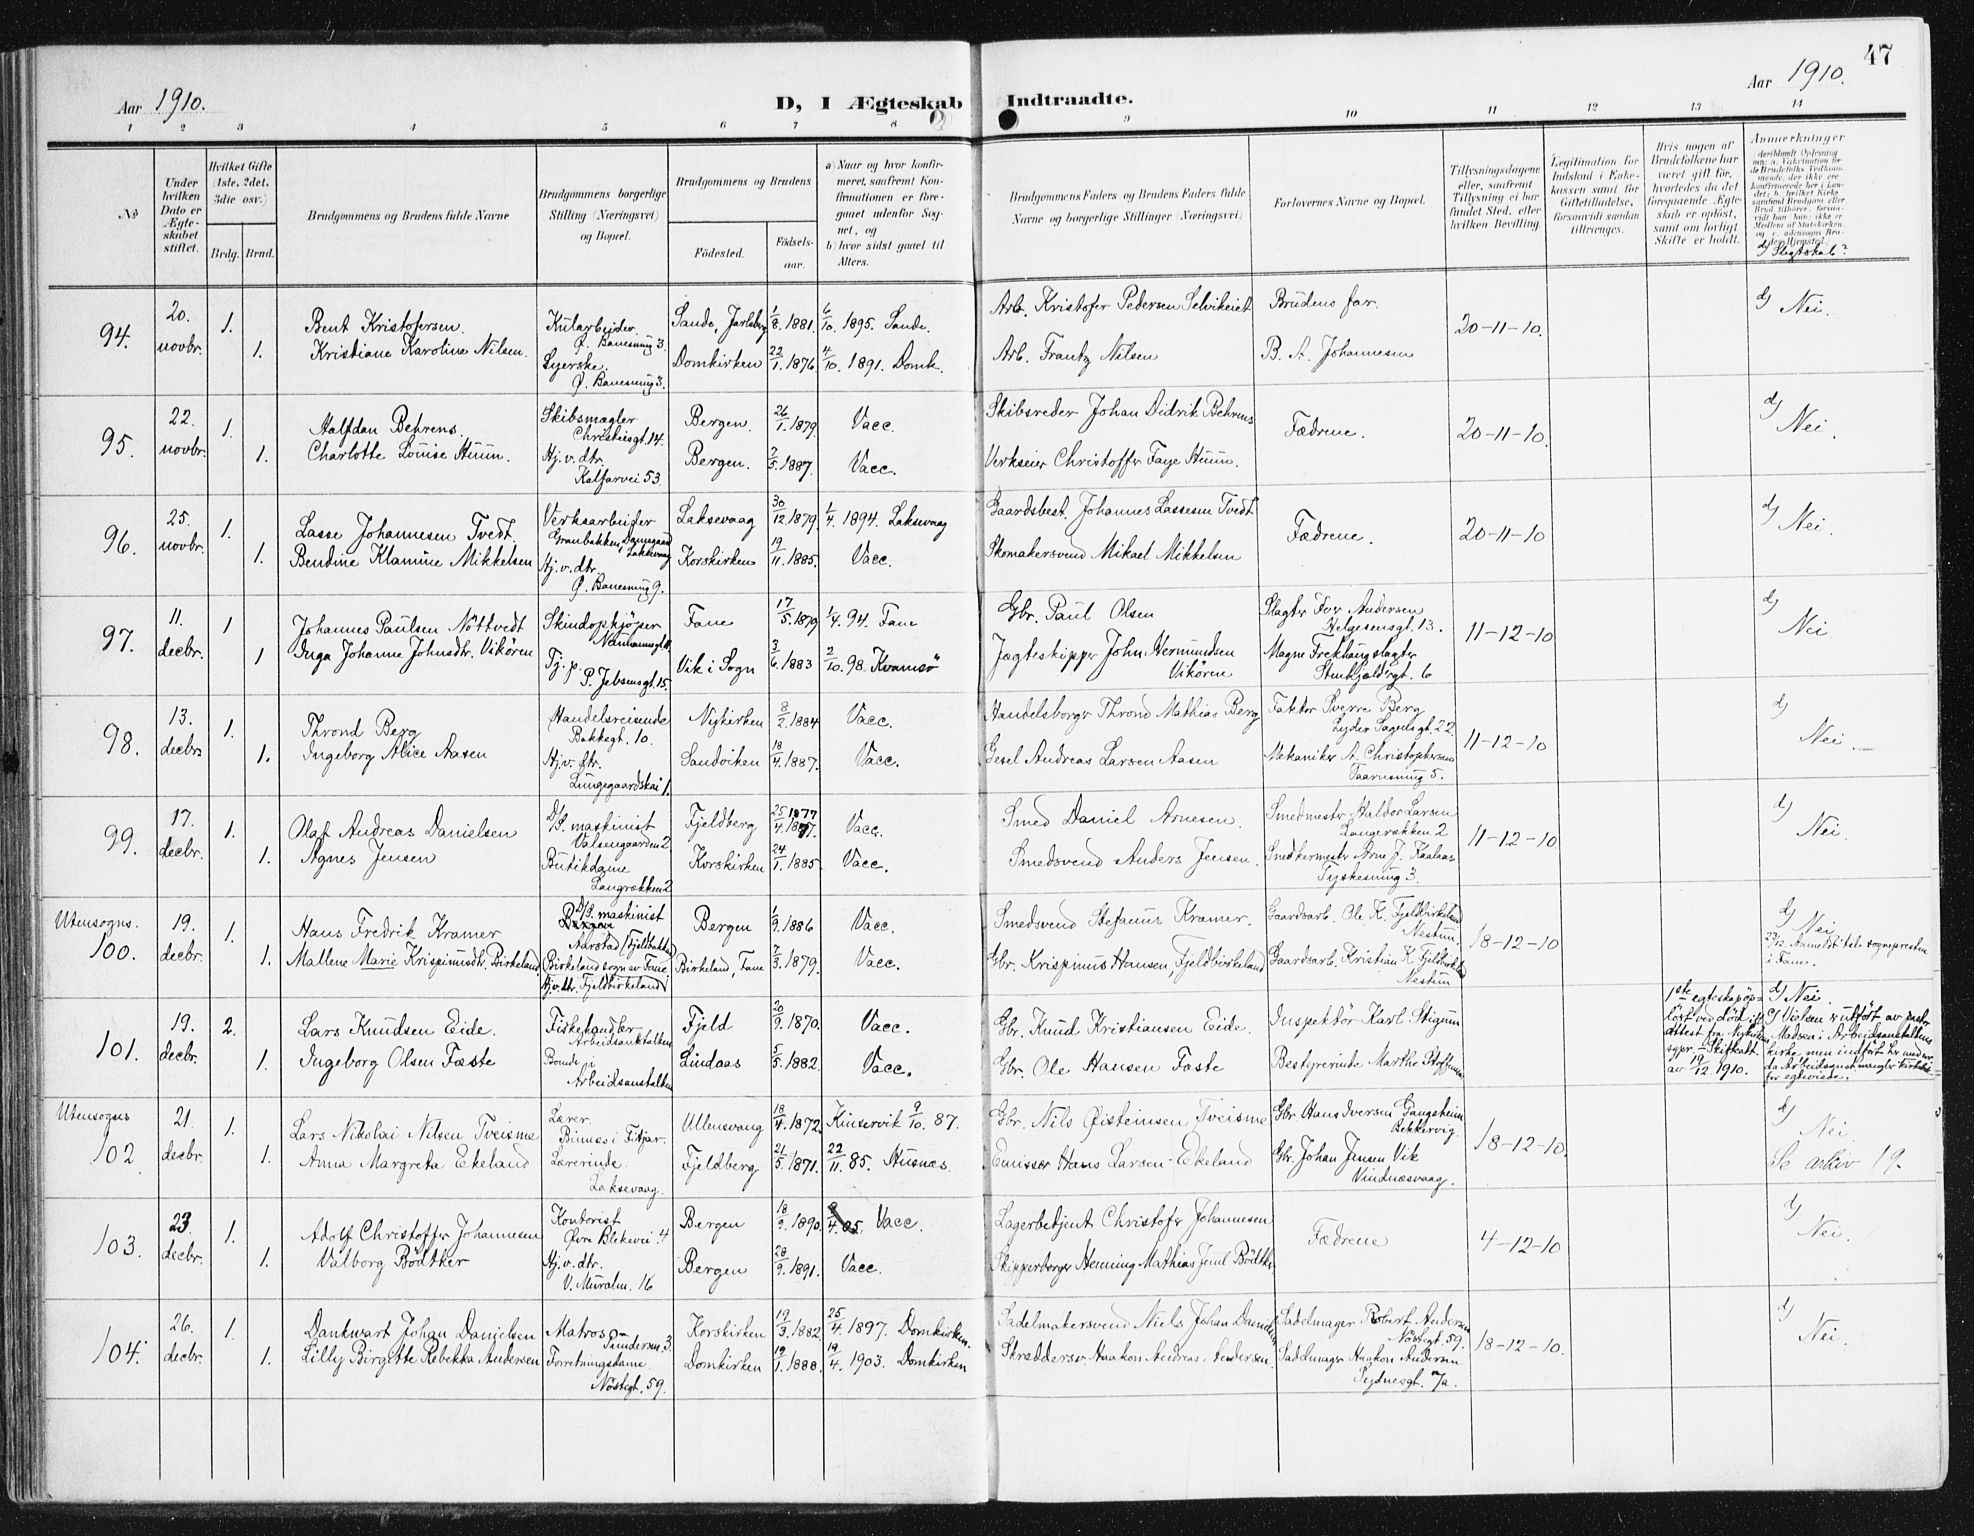 47
Aar 1910.
D, I Ægteskab Indtraadte.
Aar 1910.
1 2 3 4 5 6 7 8 9 10 11 12 13 14
No
Under hvilken Dato er Ægteskabet stiftet.
Hvilket Gifte (1ste, 2det, 3die osv.)
Brdg. Brud.
Brudgommens og Brudens fulde Navne
Brudgommens borgerlige Stilling (Næringsvei) og Bopæl.
Brudgommens og Brudens
Födested. Födselsaar.
a) Naar og hvor konfirmeret, saafremt Konfirmationen er foregaaet udenfor Sognet, og
b) hvor sidst gaaet til Alters.
Brudgommens Faders og Brudens Faders fulde Navne og borgerlige Stillinger (Næringsvei)
Forlovernes Navne og Bopæl.
Tillysningsdagene eller, saafremt Tillysning ei har fundet Sted, efter hvilken Bevilling.
Legitimation for Indskud i Enkekassen samt for Giftetilladelse, forsaavidt saadan tiltrænges.
Hvis nogen af Brudefolkene har været gift før, hvorledes da det foregaaende Ægteskab er opløst, samt om lovligt Skifte er holdt.
Anmærkninger
d) Slegtskab?
94. 20. novbr. 1. Bent Kristofersen. Kularbeider. Ø. Banesmug 3. Sande, Jarlsberg 1/8 1881. 6/10. 1895. Sande. Arb. Kristofer Pedersen Selvikeiet Brudens far. 20-11-10. d) Nei.
1. Kristiane Karoline Nilsen. Syerske. Ø. Banesmug 3. Domkirken 22/1 1876 4/10. 1891. Domk. Arb. Frantz Nilsen B. A. Johannesen
95. 22. novbr. 1. Halfdan Behrens. Skibsmægler Christiesgt. 14. Bergen. 26/1. 1879. Vacc. Skibsreder Johan Didrik Behrens Fædrene. 20-11-10. d) Nei.
1. Charlotte Louise Huun. Hj. v. dtr. Kalfarvei 53. Bergen. 2/5. 1887. Vacc. Verkseier Christoffer Faye Huun.
96. 25. novbr. 1. Lasse Johannesen Tvedt. Verksarbeider Granbakken, Damsgaard Laksevaag Laksevaag 30/12. 1879. 1/4. 1894. Laksevaag Gaardsbest. Johannes Lassesen Tvedt Fædrene. 20-11-10 d) Nei.
1. Bendine Klamine Mikkelsen Hj. v. dtr. Ø. Banesmug 9. Korskirken 19/11. 1885. Vacc. Skomakersvend Mikael Mikkelsen
97. 11. decbr. 1 Johannes Paulsen Nöttvedt Skindopkjøper Neumannsgt. Fane 17/5. 1879 1/4. 94. Fane Gbr. Paul Olsen Slagter Andersen Helgesensgt. 13. 11-12-10 d) Nei
1 Inga Johanne Johnsdtr. Vikören Tj. p. P. Jebsensgt. 15. Vik i Sogn 3/6. 1883 2/10. 98. Kvamsö Jægteskipper John Hermundsen Vikören Magne Frekhaug slagter Stenkjeldergt. 6
98. 13. decbr. 1. Thrond Berg Handelsreisende Bakkegt. 10. Nykirken 8/2. 1884 Vacc. Handelsborger Thrond Mathias Berg Faktor Sverre Berg Lyder Sagensgt. 22. 11-12-10 d) Nei.
1. Ingeborg Alice Aasen Hj. v. dtr. Lungegaardskai 1. Sandviken 18/4. 1887. Vacc. Gesel Andreas Larsen Aasen Mekaniker A. Christophersen Taarnsmug 5.
99. 17. decbr. 1. Olaf Andreas Danielsen D/S. maskinist Valsengaarden 2 Fjeldberg 25/4. 1877 Vacc. Smed Daniel Arnesen. Smedmestr. Haldor Larsen Langerækken 2 11-12-10 d) Nei.
1. Agnes Jensen Butikdame Langrækken 2 Korskirken 24/1. 1885. Vacc. Smedsvend Anders Jensen. Snedkermestr. Arne J. Kaalaas Tyskesmug 3.
Utensogns. 100. 19. decbr. 1. Hans Fredrik Kramer D/S. maskinist Bergen Aarstad (Fjeldbakke) Bergen 1/9. 1886 Vacc. Smedsvend Stefanus Kramer. Gaardsarb. Ole K. Fjeldbirkeland Nestun. 18-12-10 d) Nei 23/12. Anmeldt til sognepresten i Fane.
1. Mallene Marie Krispinusdtr. Birkeland Birkeland sogn av Fane Hj. v. dtr. Fjeldbirkeland Birkeland, Fane 7/3. 1879. Vacc. Gbr. Krispinus Hansen, Fjeldbirkeland Gaardsarb. Kristian K. Fjeldbirkeland Nestun
101. 19. decbr. 2. Lars Knudsen Eide. Fiskehandler Arbeidsanstalten Fjeld 20/9. 1870. Vacc. Gbr. Knud Kristiansen Eide. Inspektör Karl Stigum 1ste egteskap opløst ved død ifl. attest fra Nykirkens sgpr. - Skifteatt. av 19/12 1910. d) Nei. c) Vielsen er utført av pastor Madsen i Arbeidsanstaltens kirke, men indført her
1. Ingeborg Olsen Faste Boende i Arbeidsanstalten Lindaas 5/5 1882. Vacc. Gbr. Ole Hansen Faste Bestyrerinde Marthe Steffensen
Utensogns 102 21. decbr. 1. Lars Nikolai Nilsen Tveisme Lærer. Bimnes i Fitjar. Ullensvang 18/4. 1872. Kinservik 9/10. 87. Gbr. Nils Øisteinsen Tveisme Gbr. Hans Iversen Gangsheim Bekkervig. 18-12-10. d) Nei Se arkiv 19.
1. Anna Margreta Ekeland Lærerinde. Laksevaag. Fjeldberg 21/5. 1871. 22/11. 85. Husnæs. Emissær Hans Larsen Ekeland Gbr. Johan Jensen Vik Vindnæsvaag.
103. 23. decbr. 1. Adolf Christoffer Johannesen Kontorist Øvre Blekevei 4 Bergen 18/9. 1890. Vacc. Lagerbetjent Christofer Johannesen Fædrene 4-12-10 d) Nei.
1. Valborg Bödtker Hj. v. dtr. V. Muralm. 16 Bergen 28/9. 1891. Vacc. Skipperborger Henning Mathias Juul Bödtker
104. 26. decbr. 1. Dankwart Johan Danielsen Matros Sundersm. 3. Korskirken 19/3. 1882 25/4. 1897. Domkirken. Sadelmakersvend Niels Johan Danielsen Sadelmager Robert Andersen Nöstegt. 59. 18-12-10. d) Nei.
1. Lilly Birgitte Rebekka Andersen Forretningsdame. Nöstegt. 59. Domkirken 19/1. 1888. 19/4. 1903. Domkirken Skrædder Haakon Andreas Andersen. Sadelmager Haakon Andersen Sydnesgt. 7a.